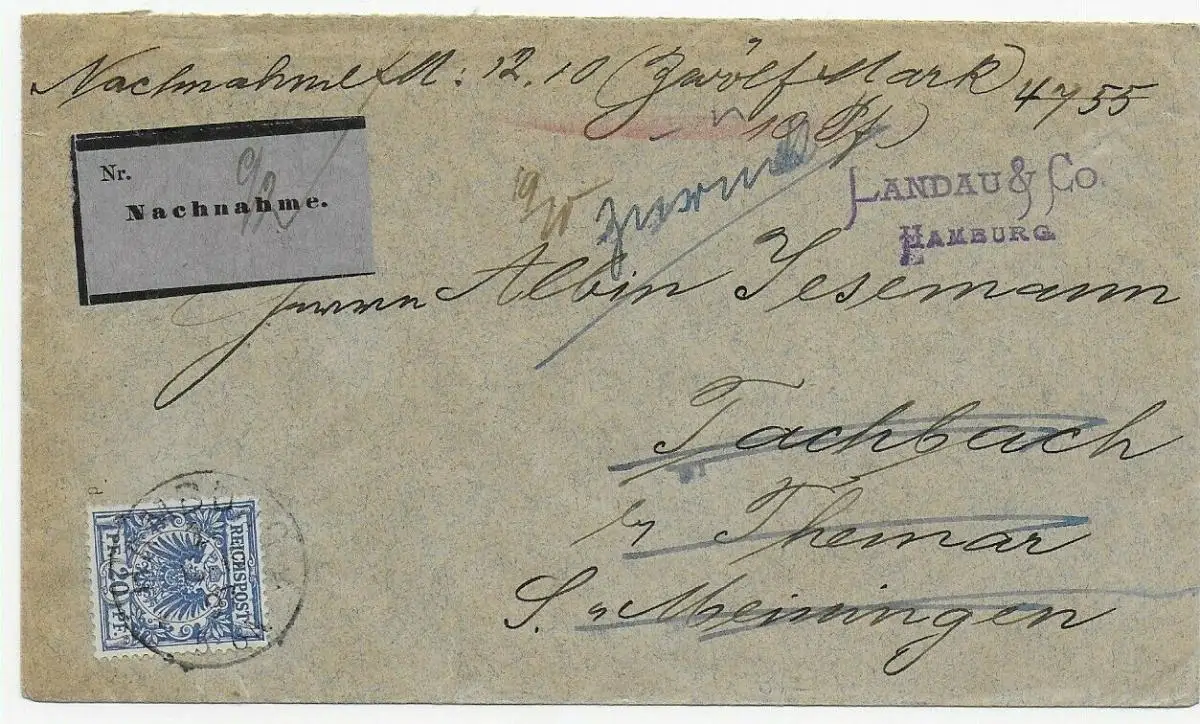 Nachnahme M: 12.10 (Zwölf Mark
4755
10 Pf)
Nr.
Nachnahme.
9/12
zurück
LANDAU & Co.
HAMBURG
Herrn Albin Jesemann
Tachbach
b/ Themar
S. Meiningen
REICHSPOST
20 PF.